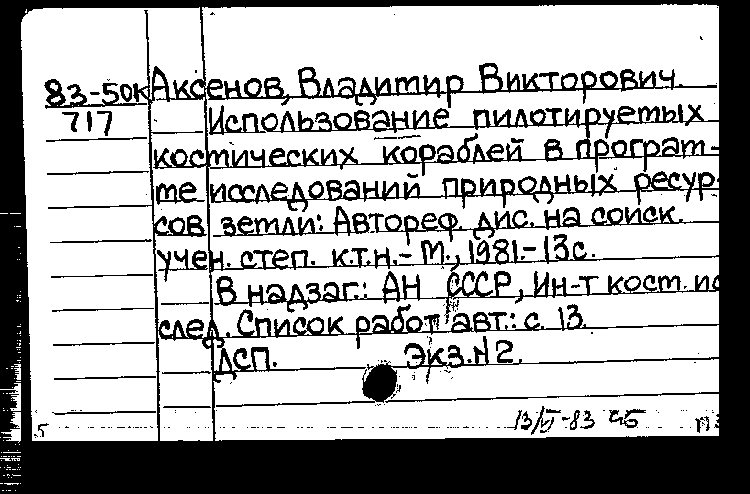 83-50к Аксенов, Владимир Викторович.
717 Использование пилотируемых
космических кораблей в програм-
ме исследований природных ресур-
сов земли: Автореф. дис. на соиск.
учен. степ. к.т.н.- М., 1981.- 13с.
В надзаг.: АН СССР, Ин-т косм. ис
след. Список работ авт.: с. 13.
ДСП. Экз.N2.
13/VI-83
5